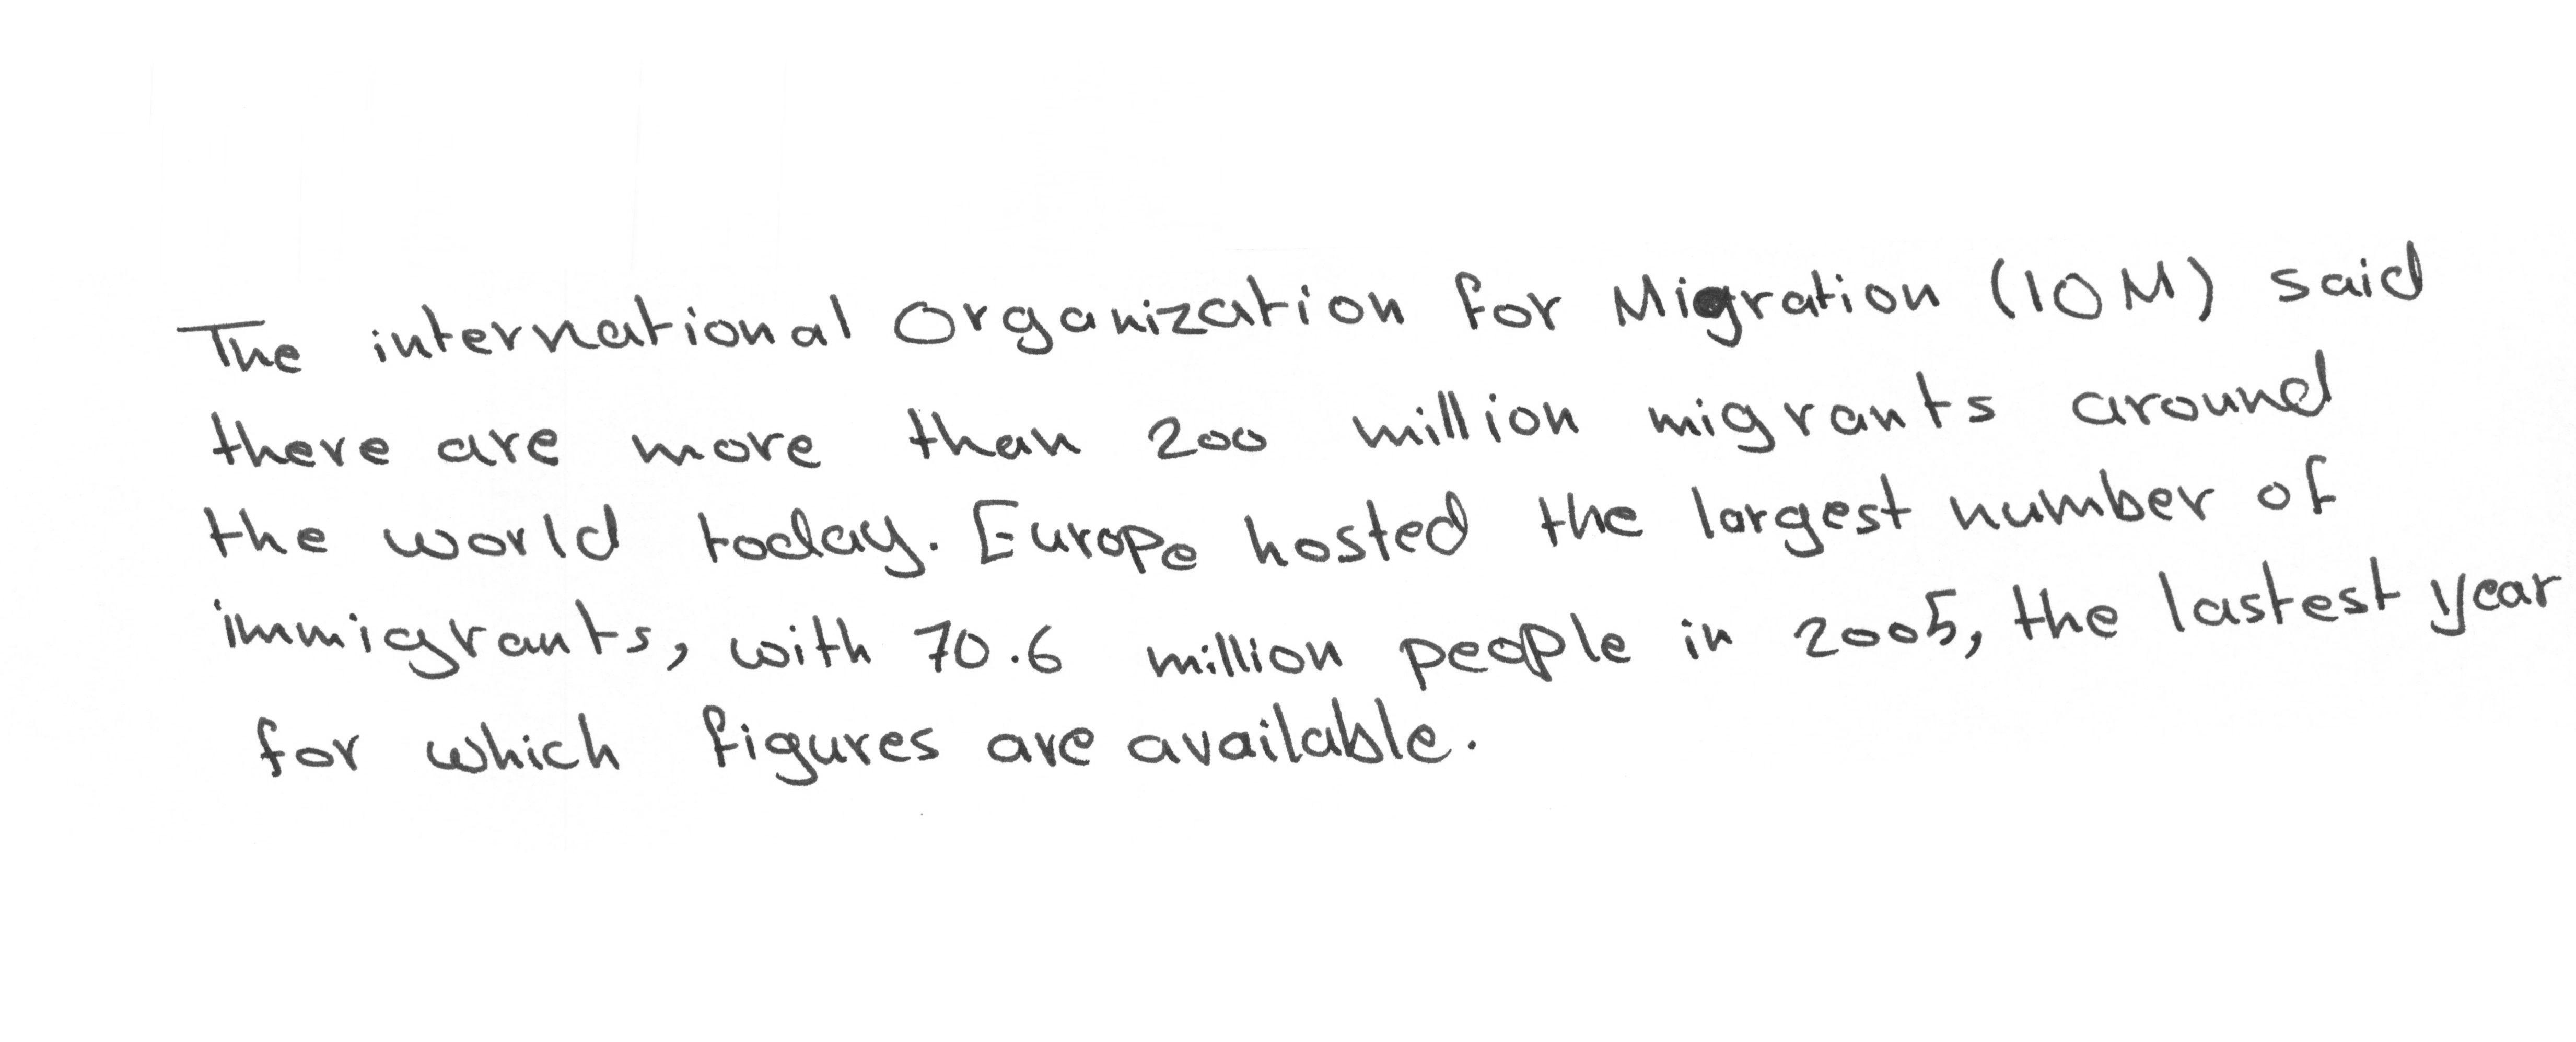 The international Organization for Migration (IOM) said
there are more than 200 million migrants around
the world today. Europe hosted the largest number of
immigrants, with 70.6 million people in 2005, the lastest year
for which figures are available.